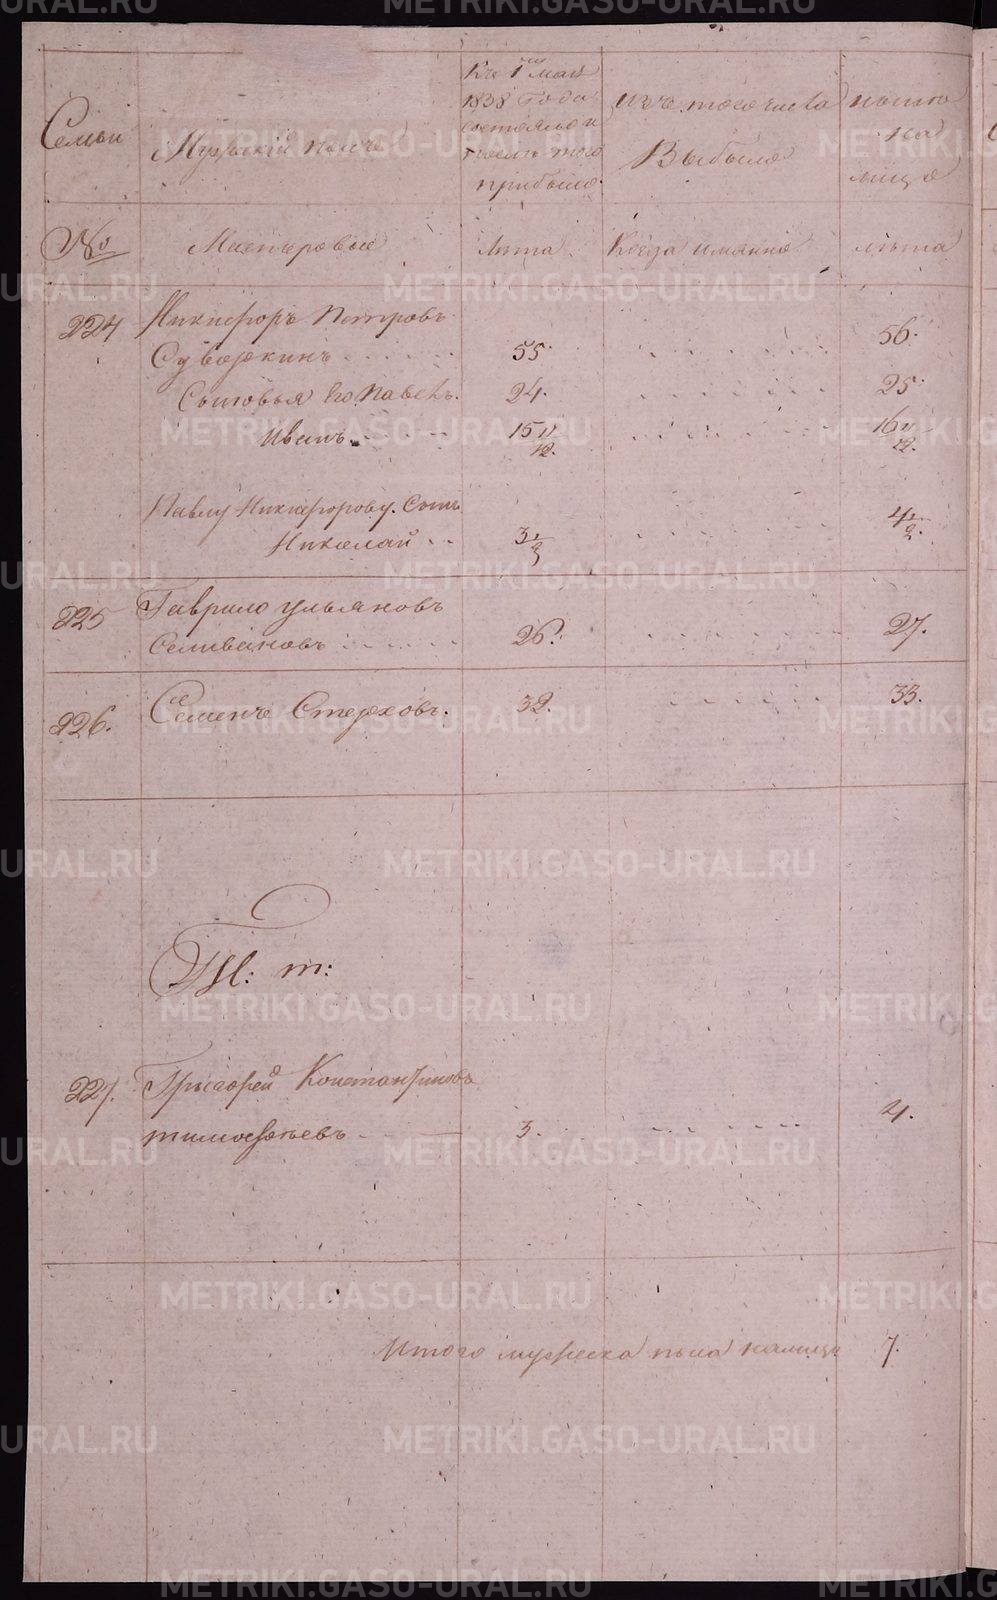 METRIKI.GASO-URAL.RU
Семьи
Мужеский полъ
Къ 1 мая
1838 года
состояло и
после того
прибыло.
Изъ того числа
Выбыло
ныне
на
лицо
№
Мастеровые
лета
Когда имянно
лета
224 Никифоръ Петровъ
Суворкинъ 55. 56.
Сыновья Его Павелъ. 24. 25.
Иванъ. 15 11/12. 16 11/12.
Павлу Никифорову. Сынъ
Николай 3 1/2 4 1/2.
225 Гаврило Ульяновъ
Селивановъ 26. 27.
226. Семенъ Стерховъ. 32. 33.
т:
227. Григорей Констонтиновъ
тимофеевъ 3. 4.
Итого мужеска пола налицо 7.